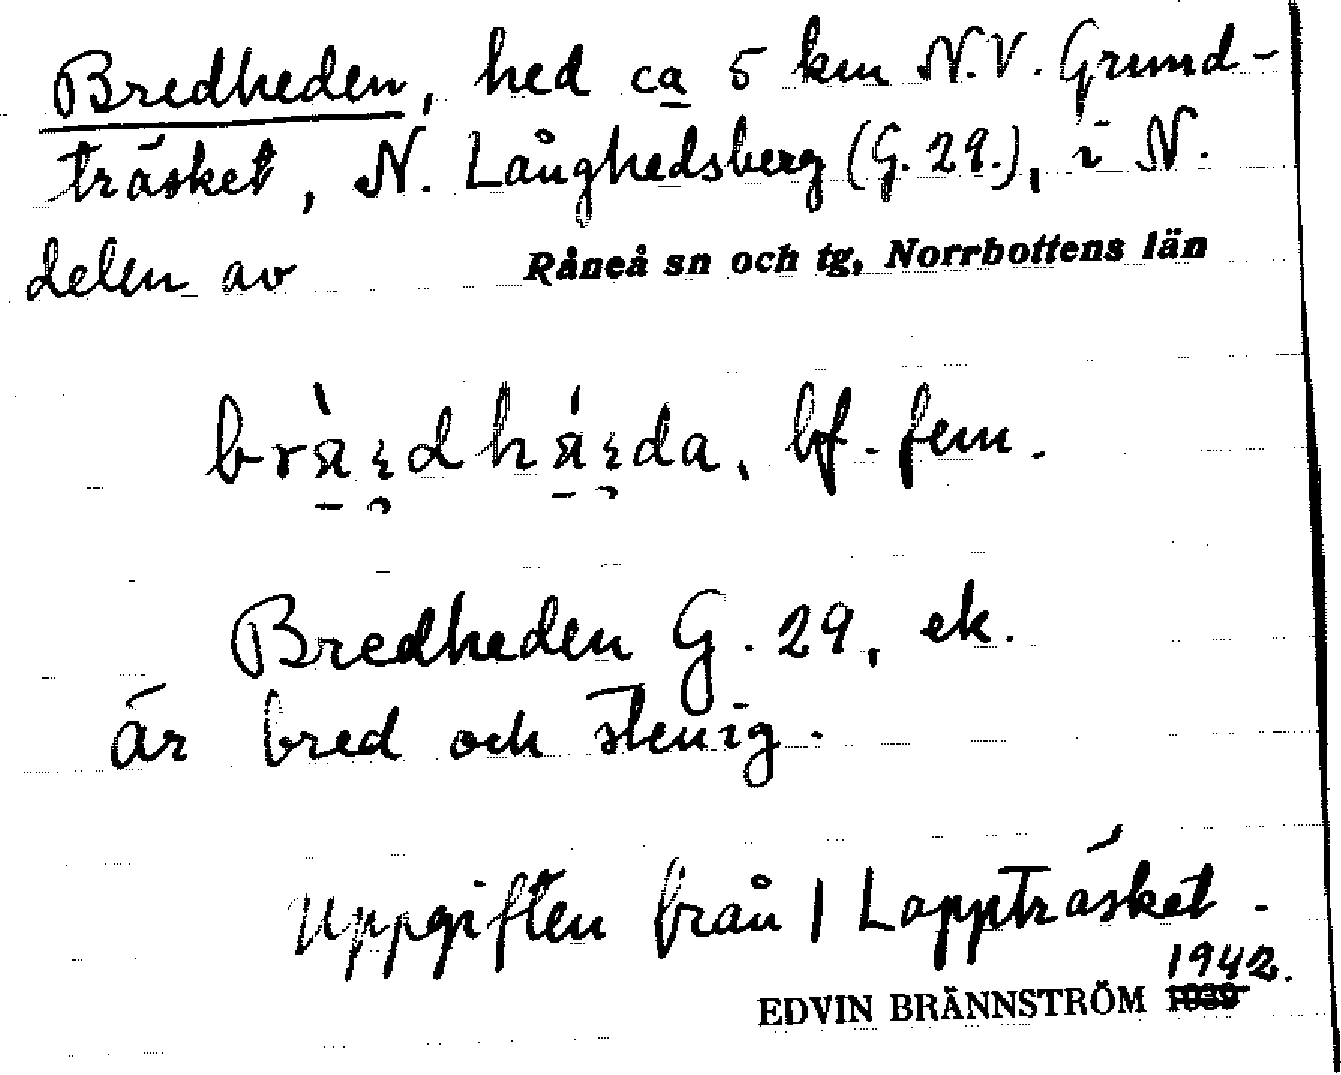 Bredheden, hed ca 5 km N.V. Grund-
träsket, N. Långhedsberg (G. 29.), i N.
delen av Råneå sn och tg, Norrbottens län
bf. fem.
Bredheden G. 29, ek.
är bred och stenig.
Uppgiften från 1 Lappträsket.
1942.
EDVIN BRÄNNSTRÖM 1939